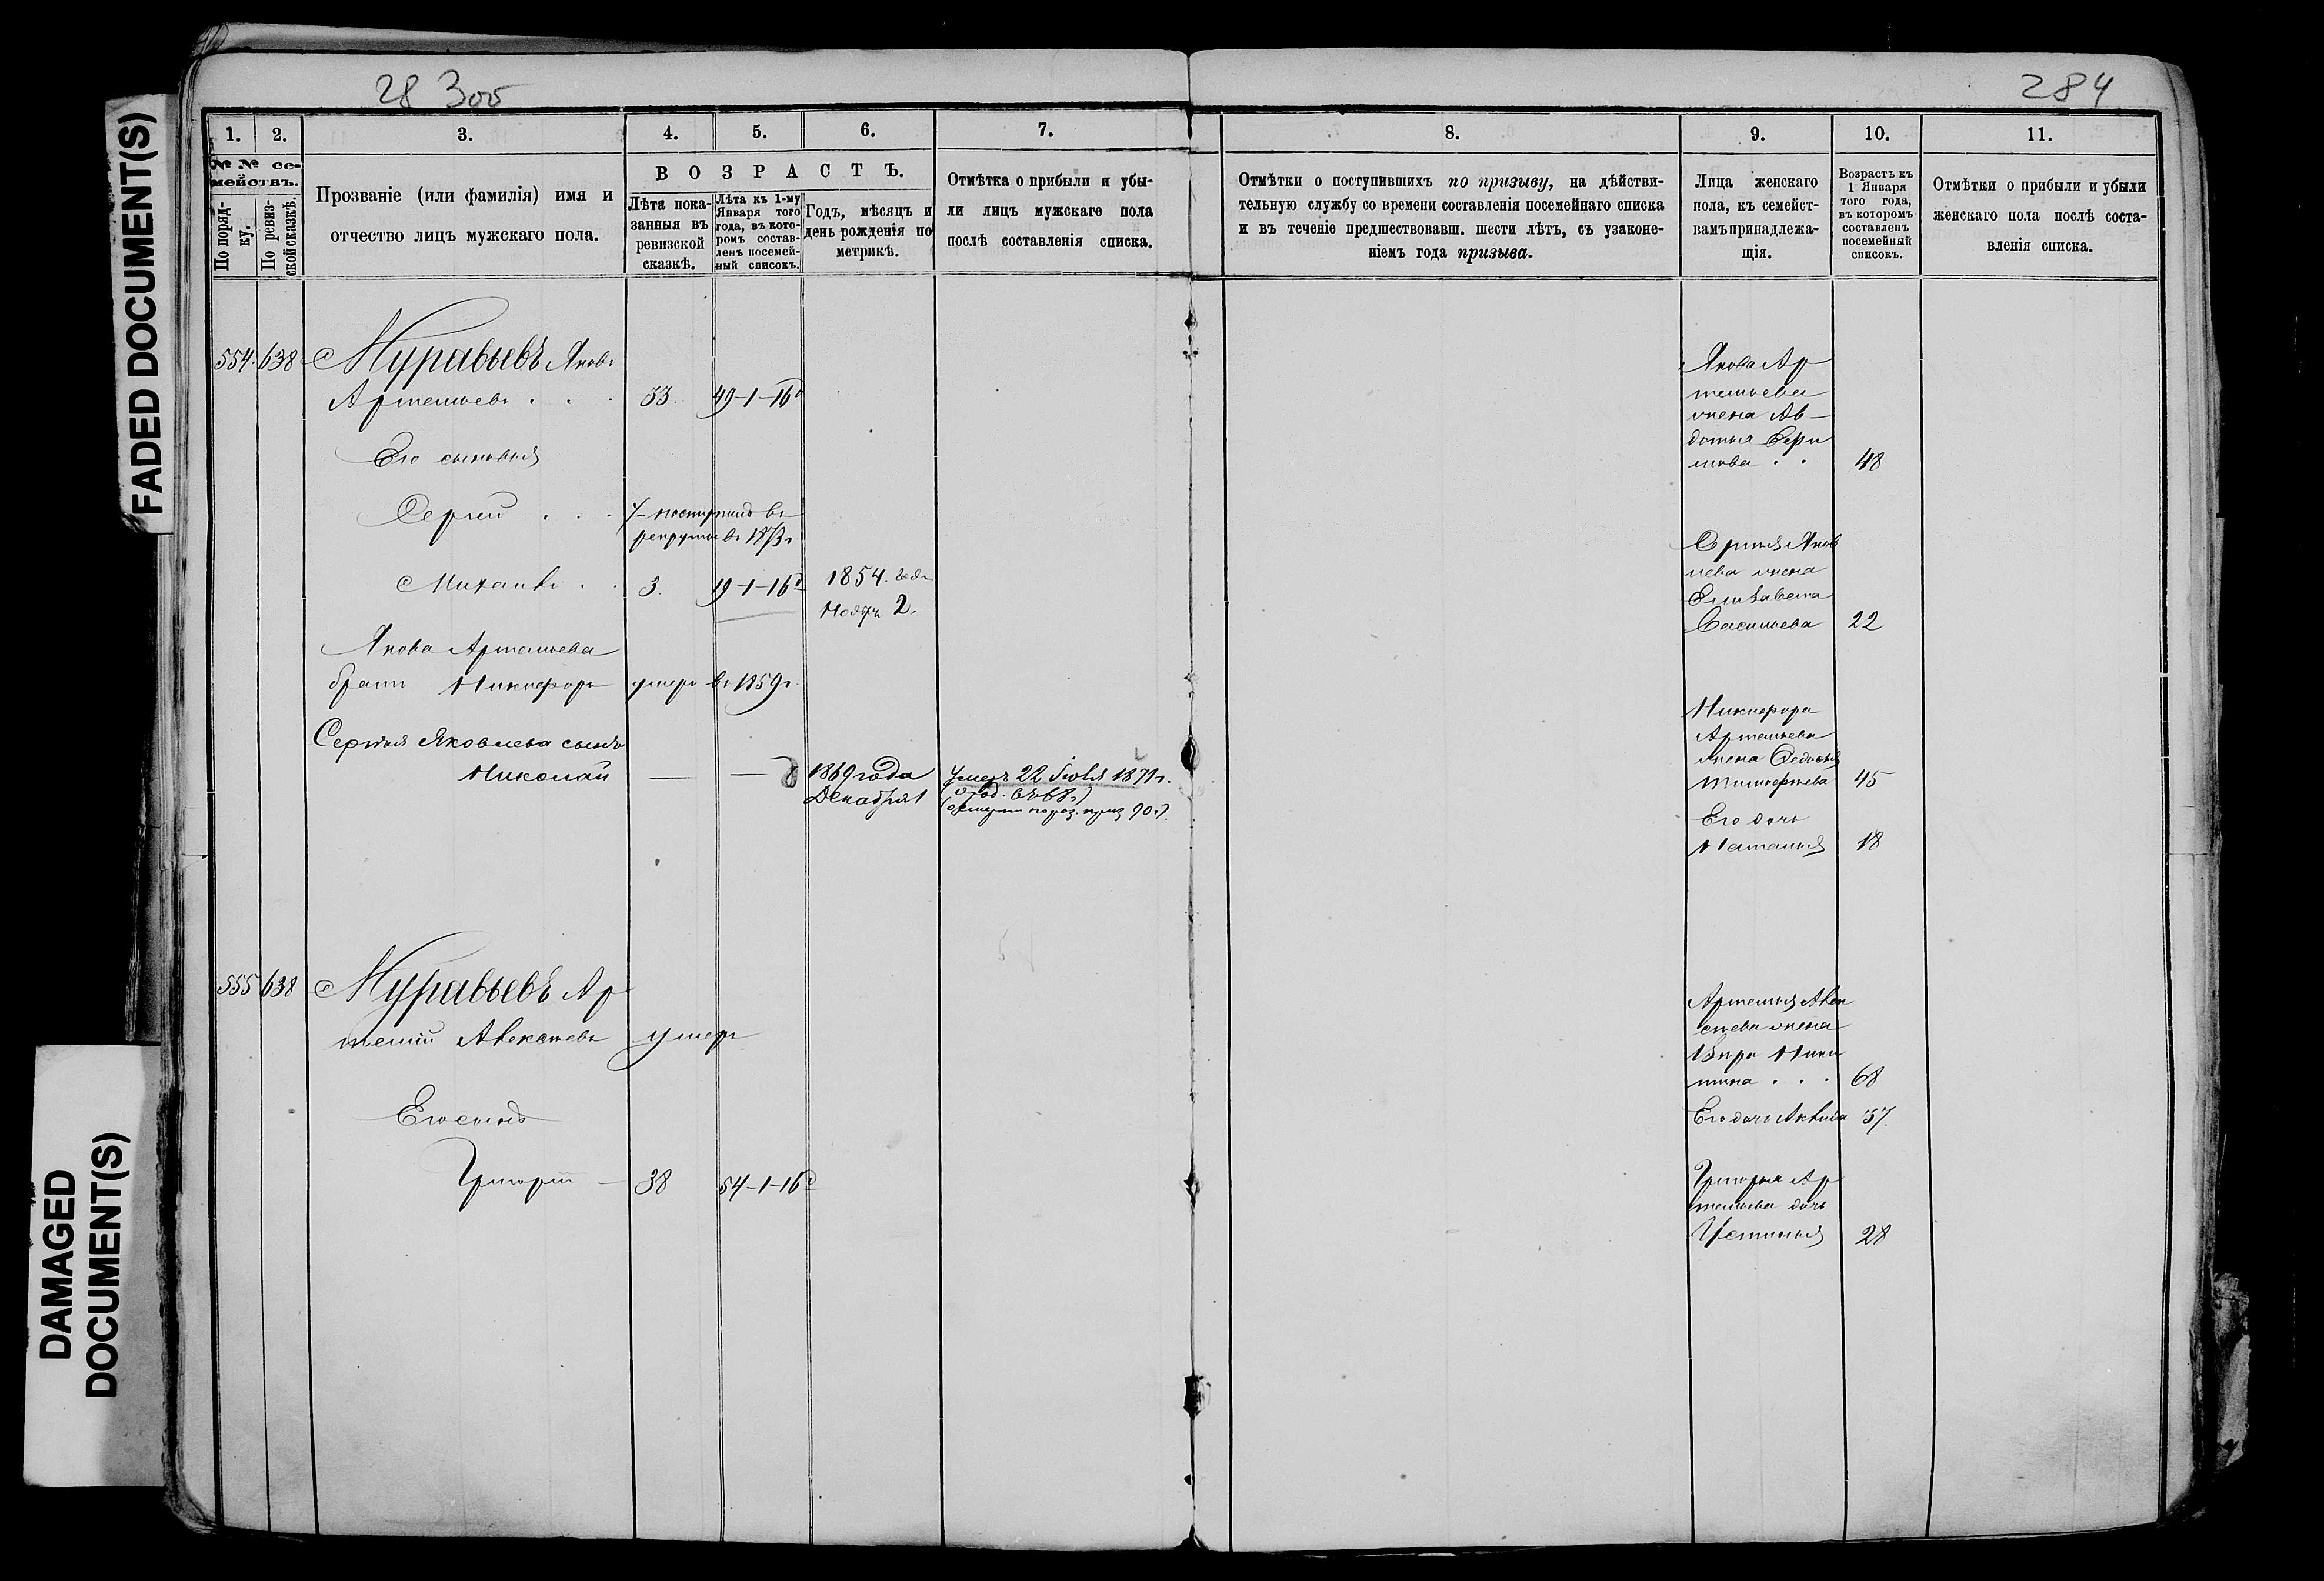 FADED DOCUMENT(S)
DAMAGED
DOCUMENT(S)
28 300
284
1.
2.
3.
4.
5.
6.
7.
8.
9.
10.
11.
№ № се-
мействъ.
По поряд-
ку.
По ревиз-
ской сказкѣ.
Прозваніе (или фамилія) имя и
отчество лицъ мужскаго пола.
ВОЗРАСТЪ.
Лѣта пока-
занныя въ
ревизской
сказкѣ.
Лѣта къ 1-му
Января того
года, въ кото-
ромъ состав-
ленъ посемей-
ный списокъ.
Годъ, мѣсяцъ и
день рожденія по
метрикѣ.
Отмѣтка о прибыли и убы-
ли лицъ мужскаго пола
послѣ составленія списка.
Отмѣтки о поступившихъ по призыву, на дѣйстви-
тельную службу со времени составленія посемейнаго списка
и въ теченіе предшествовавш. шести лѣтъ, съ узаконе-
ніемъ года призыва.
Лица женскаго
пола, къ семейст-
вамъ принадлежа-
щія.
Возрастъ къ
1 Января
того года,
въ которомъ
составленъ
посемейный
списокъ.
Отмѣтки о прибыли и убыли
женскаго пола послѣ соста-
вленія списка.
554. 638 Муравьевъ Яковъ
Артемьевъ . . . 33. 49-1-16
Его сыновья
Сергій . . . поступилъ въ
рекруты въ 187 г
Михаилъ . . 3. 19-1-16 1854. года
Ноябр. 2.
Якова Артемьева
братъ Никифоръ умеръ въ 1859 г.
Сергѣя Яковлева сынъ
Николай — — 1869 года
Декабря 1
Умеръ 22 Іюля 187 г.
Якова Ар
темьева
жена Ав-
дотья
. . 48
Сергѣя Яков
лева жена
Елизавета
Васильева 22
Никифора
Артемьева
жена Федосья
Тимофеева 45
Его дочь
Наталья 18
555 638 Муравьевъ Ар
темій Алексѣевъ умеръ
Его сынъ
Григорій — 38 54-1-16
Артемья Алек
сѣева жена
Вѣра Ники
тина . . . 68
Его дочь 37.
Григорья Ар
темьева дочь
Устинья 28